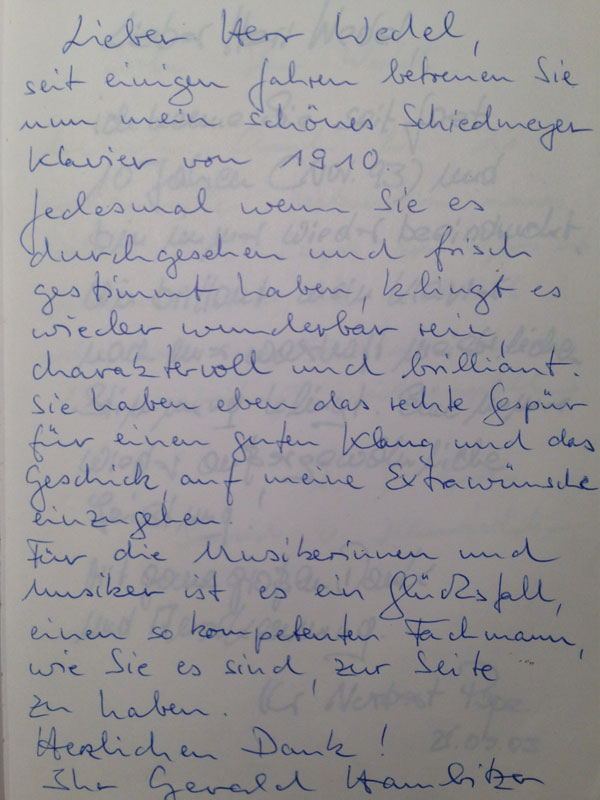 Lieber Herr Wedel,
seit einigen Jahren betreuen Sie
nun mein schönes Schiedmeyer
Klavier von 1910.
Jedesmal wenn Sie es
durchgesehen und frisch
gestimmt haben, klingt es
wieder wunderbar rein
charaktervoll und brilliant.
Sie haben eben das rechte Gespür
für einen guten Klang und das
Geschick, auf meine Extrawünsche
einzugehen.
Für die Musikerinnen und
Musiker ist es ein Glücksfall,
einen so kompetenten Fachmann,
wie Sie es sind, zur Seite
zu haben.
Herzlichen Dank!
Ihr Gerald Hambitzer